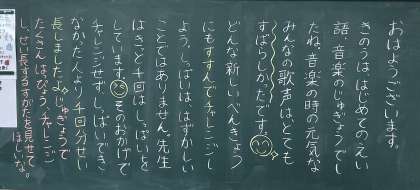 おはようございます。
きのうははじめてのえい
語、音楽のじゅぎょうでし
たね。音楽の時の元気な
みんなの歌声は、とても
すばらしかったです。
どんな新しいべんきょう
にもすすんでチャレンジし
よう。しっぱいは、はずかしい
ことではありません。先生
はきっと千回はしっぱいを
しています。そのおかげで
チャレンジせず、しっぱいでき
なかった人より千回分せい
長しました。じゅぎょうで
たくさんはっぴょう、チャレンジ
し、せい長するすがたを見せて
ほしいな。